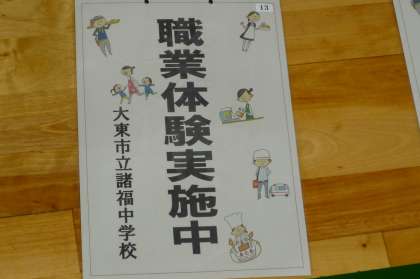 13
職業体験実施中
大東市立諸福中学校